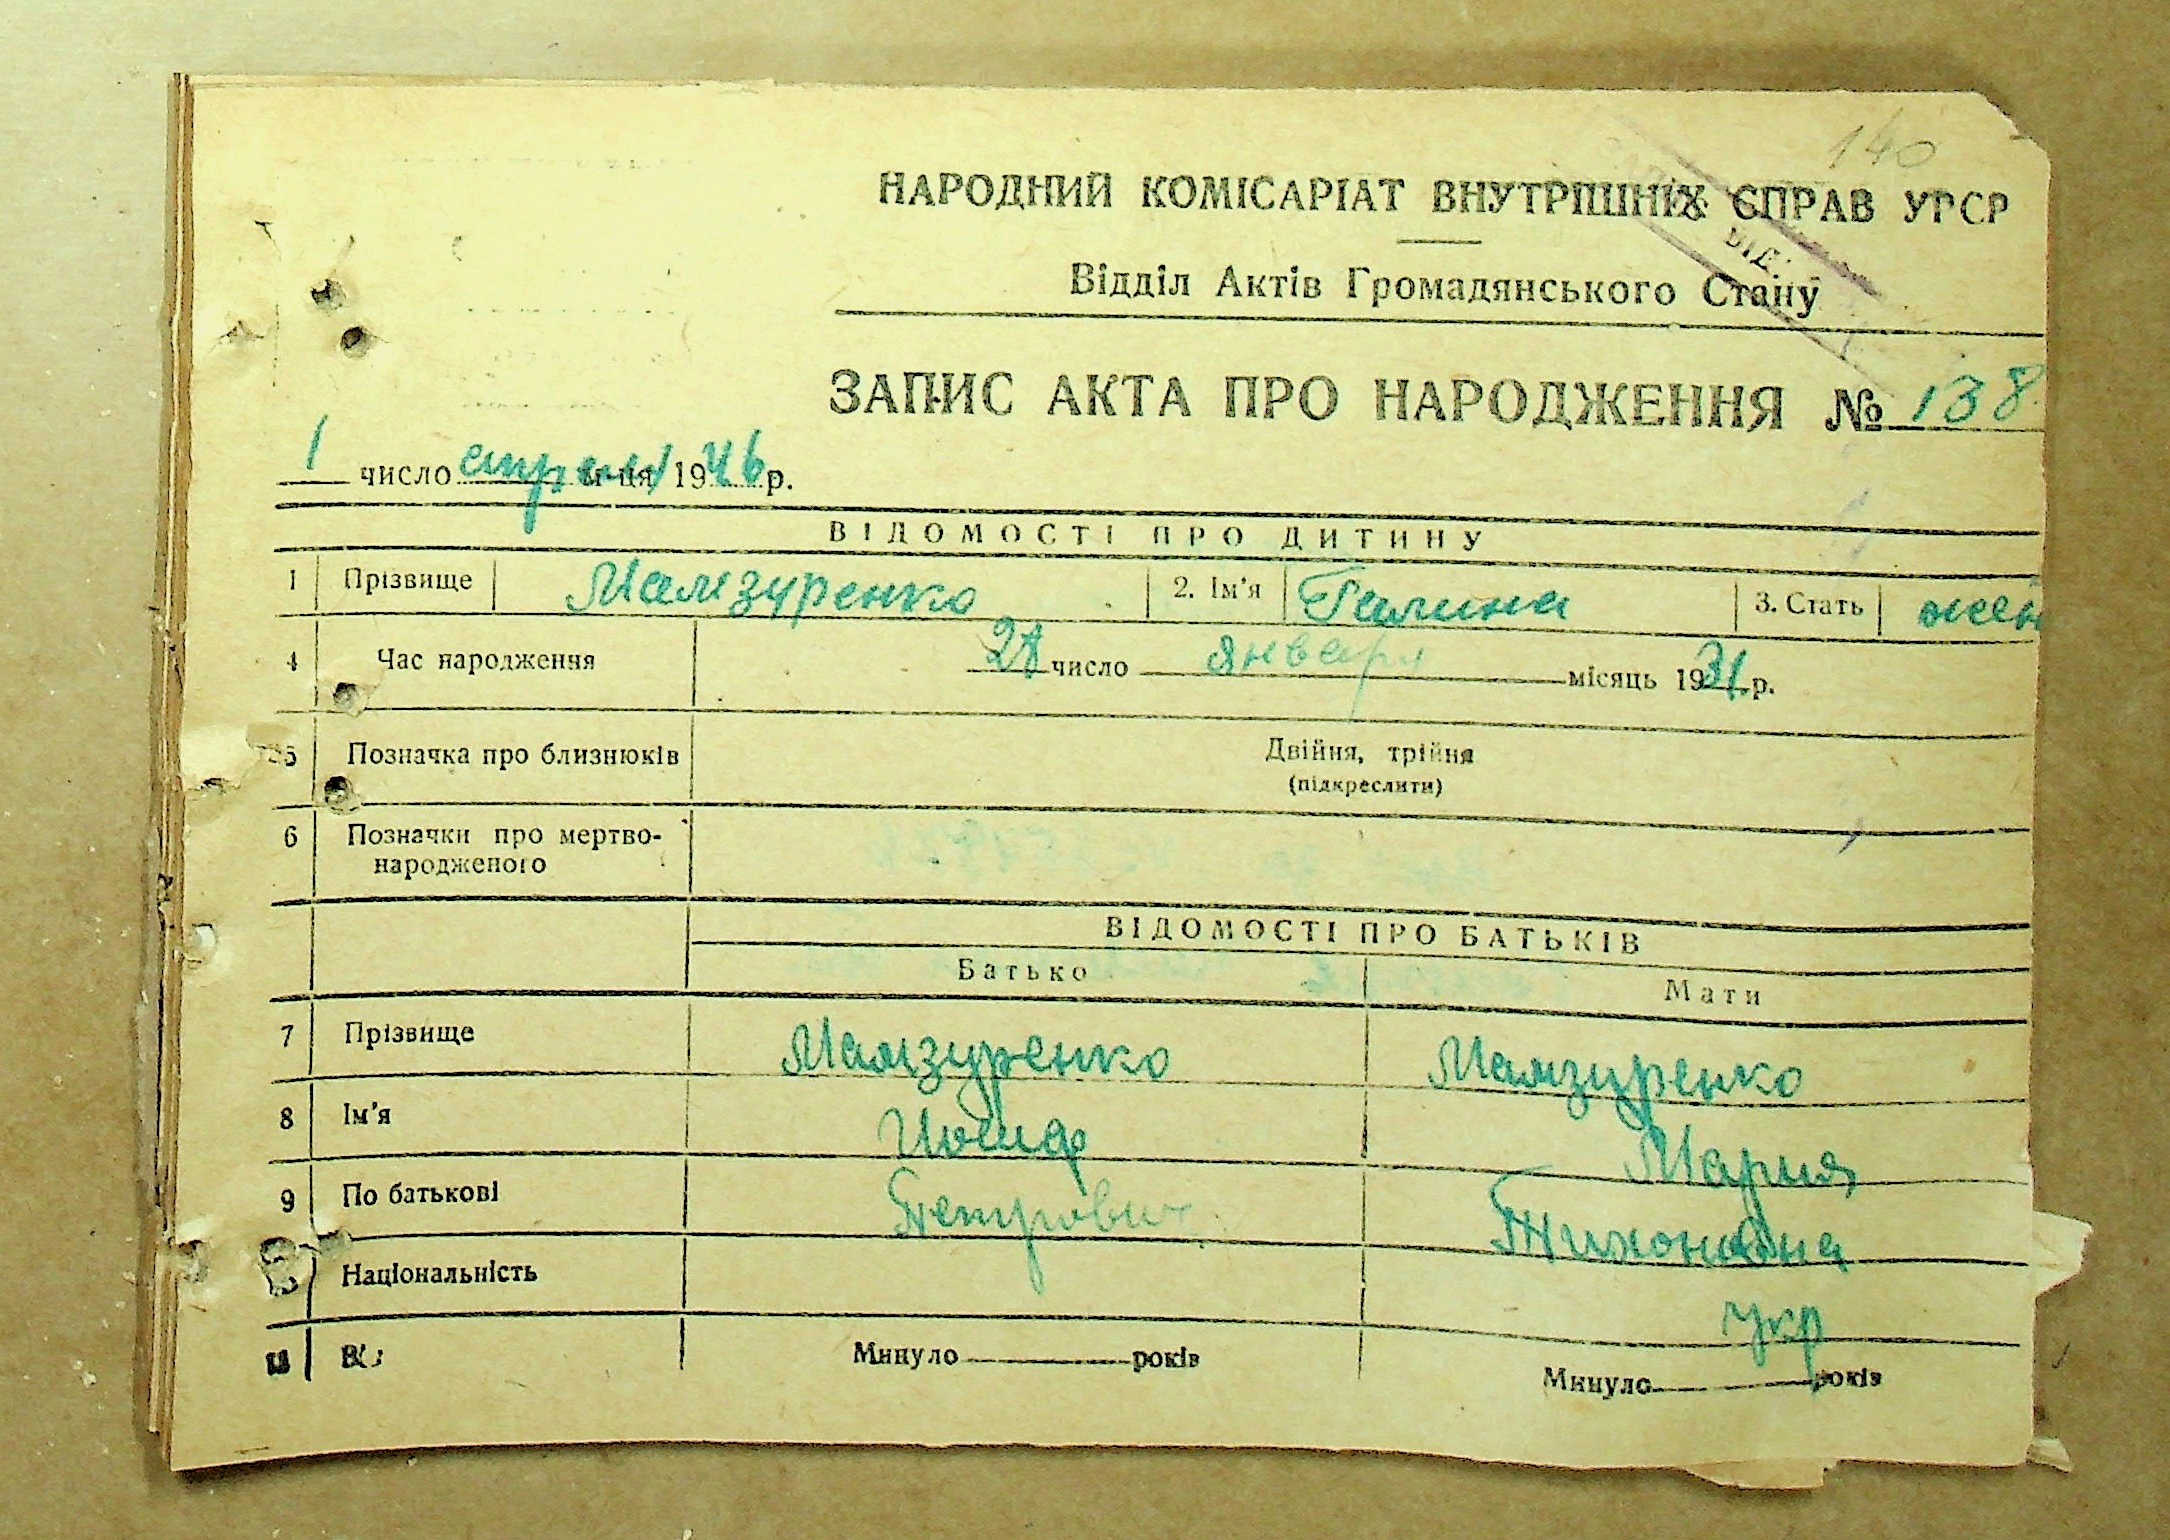 140
НАРОДНИЙ КОМІСАРІАТ ВНУТРІШНІХ СПРАВ УРСР
ВІД
Відділ Актів Громадянського Стану
ЗАПИС АКТА ПРО НАРОДЖЕННЯ № 138
1 число м-ця 1946 р.
ВІДОМОСТІ ПРО ДИТИНУ
1 Прізвище Мамзуренко 2. Ім'я Галина 3. Стать жен
4 Час народження 28 число января місяць 1931 р.
5 Позначка про близнюків Двійня, трійня
(підкреслити)
6 Позначки про мертво-
народженого
ВІДОМОСТІ ПРО БАТЬКІВ
Батько Мати
7 Прізвище Мамзуренко Мамзуренко
8 Ім'я Иосиф Мария
9 По батькові Петрович Тихоновна
Національність укр
Минуло років Минуло років